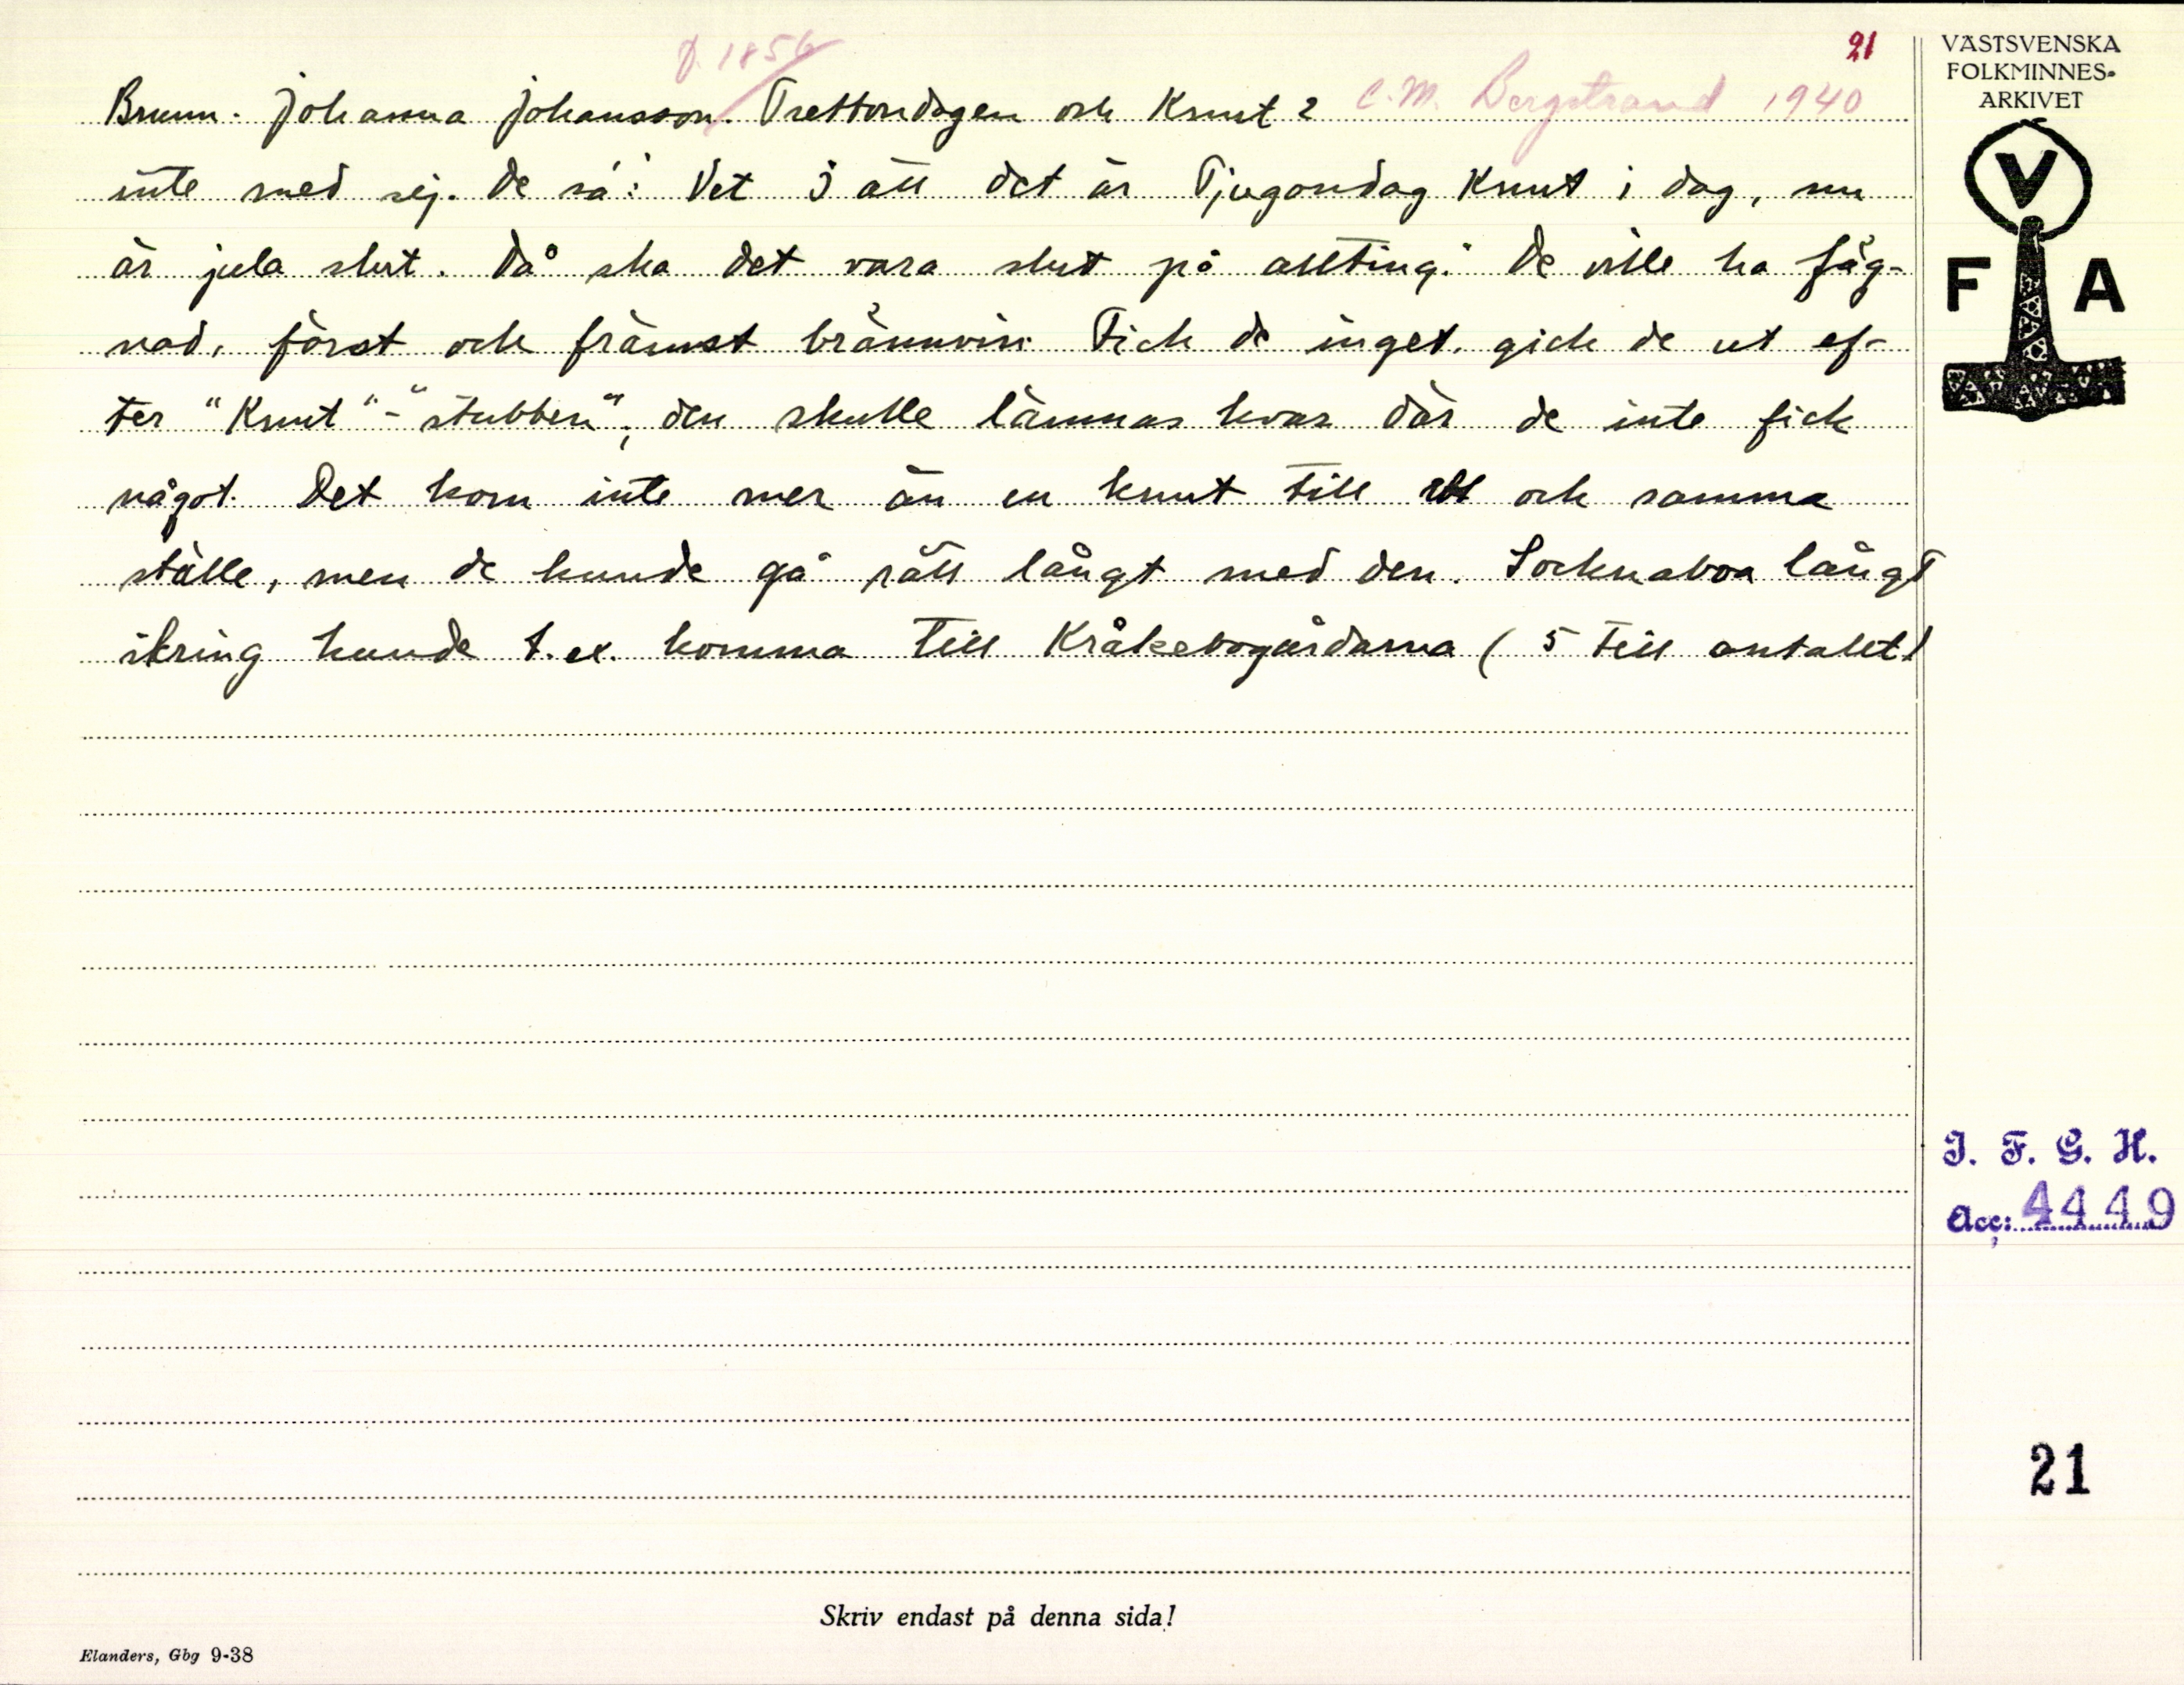 f. 1856
21
Brunn. Johanna Johansson. Trettondagen och Knut 2 C. M. Bergstrand 1940
inte med sej. De sa: "Vet I att det är Tjugondag Knut i dag, nu
är jula slut. Då ska det vara slut på allting." De ville ha fäg-
nad, först och främst brännvin. Fick de inget, gick de ut ef-
ter "Knut"-"stubben", den skulle lämnas kvar där de inte fick
något. Det kom inte mer än en knut till ett och samma
ställe, men de kunde gå rätt långt med den. Socknaboa långt
ikring kunde t.ex. komma till Kråkebogårdarna (5 till antalet)
VÄSTSVENSKA
FOLKMINNES-
ARKIVET
V
F A
I. F. G. H.
Acc: 4449
21
Skriv endast på denna sida!
Elanders, Gbg 9-38